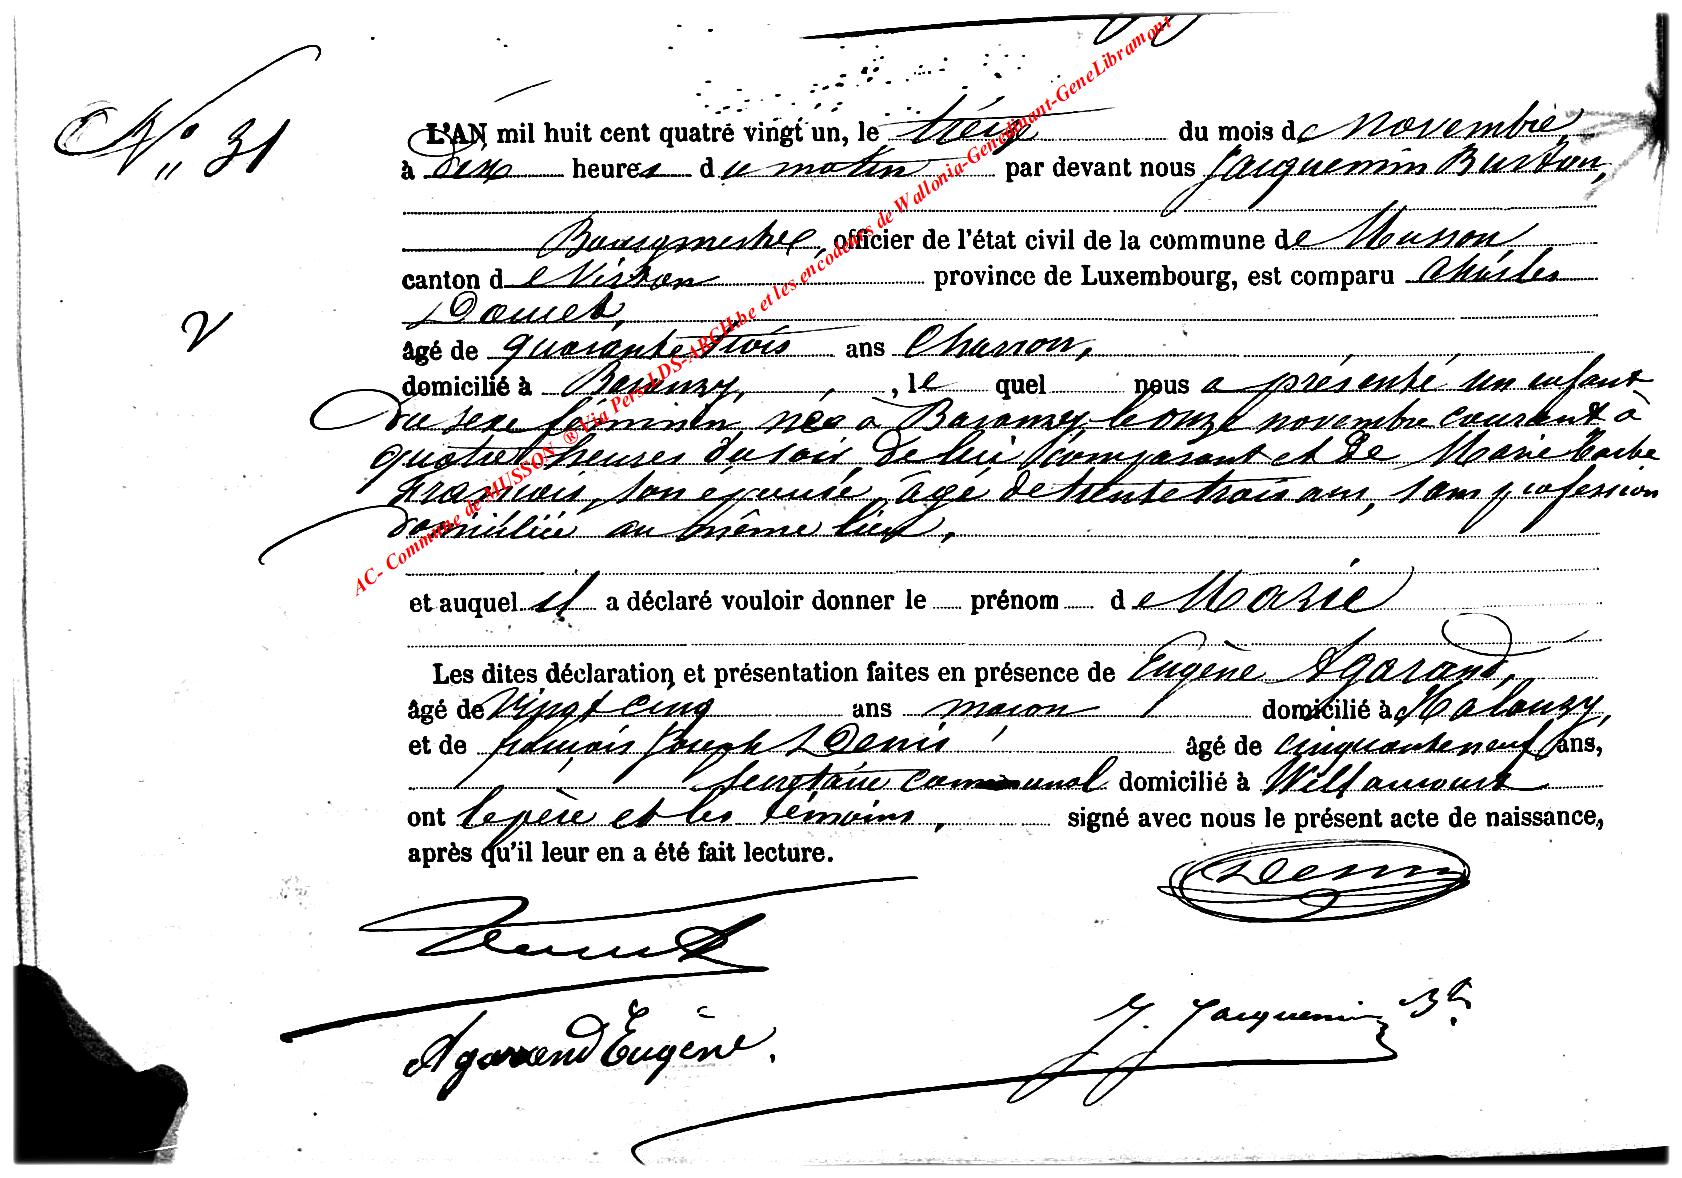 N° 31
L'AN mil huit cent quatre vingt un, le treize du mois de novembre
à dix heures du matin par devant nous Jacquemin Burton,
Bourgmestre, officier de l'état civil de la commune de Musson
canton de Virton province de Luxembourg, est comparu Charles
Doucet,
âgé de quarante trois ans Charron,
domicilié à Baranzy, , le quel nous a présenté un enfant
du sexe féminin née à Baranzy le onze novembre courant à
quatre heures du soir, de lui comparant et de Marie Barbe
François, son épouse, âgé de trente trois ans, sans profession
domiciliée au même lieu.
et auquel il a déclaré vouloir donner le prénom de Marie
Les dites déclaration et présentation faites en présence de Eugène Agarand,
âgé de Vingt cinq ans maçon domicilié à Halanzy,
et de françois Joseph Denis âgé de cinquante neuf ans,
secrétaire communal domicilié à Willancourt
ont le père et les témoins, signé avec nous le présent acte de naissance,
après qu'il leur en a été fait lecture.
Denis
Doucet
J. Jacquemin B
Agarand Eugène.
AC- Commune de MUSSON ® Via Pers LDS-ARCH.be et les encodeurs de Wallonia-Genedinant-GeneLibramont